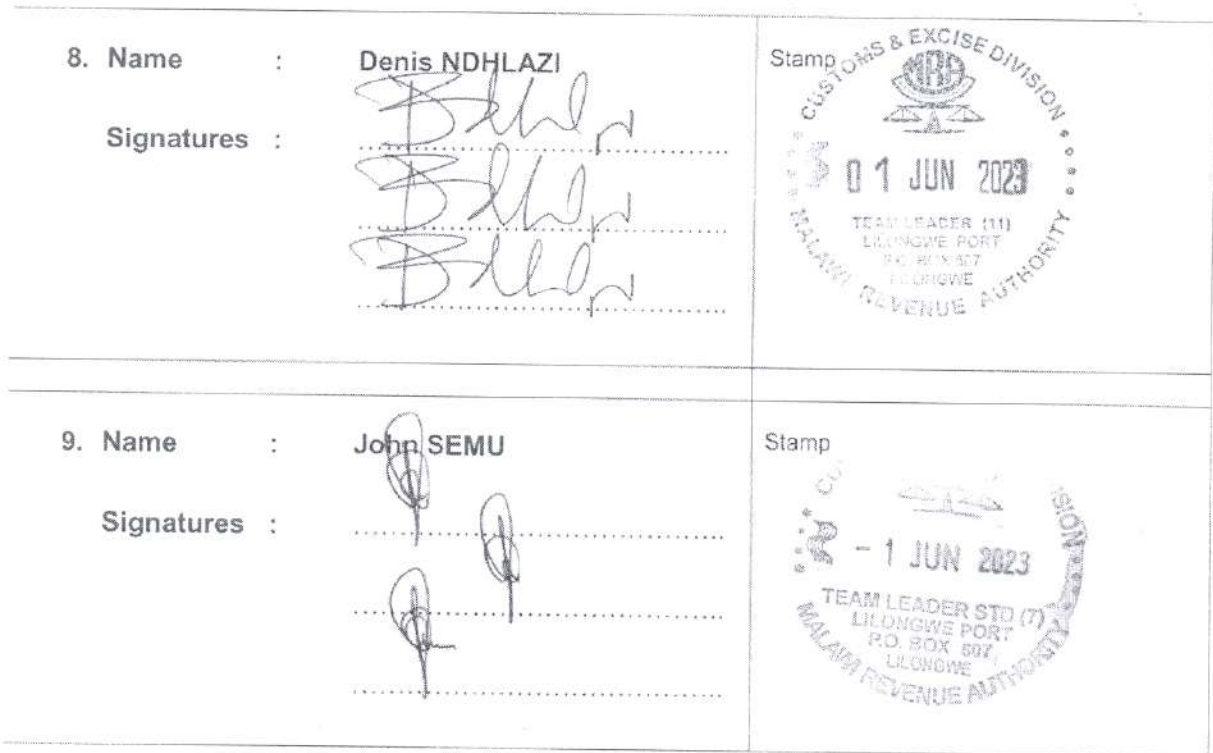 8. Name : Denis NDHLAZI
Signatures :
Stamp
CUSTOMS & EXCISE DIVISION
MRA
01 JUN 2023
TEAM LEADER (11)
LILONGWE PORT
P.O. BOX 507
LILONGWE
MALAWI REVENUE AUTHORITY
9. Name : John SEMU
Signatures :
Stamp
- 1 JUN 2023
TEAM LEADER STD (7)
LILONGWE PORT
P.O. BOX 507
LILONGWE
MALAWI REVENUE AUTHORITY